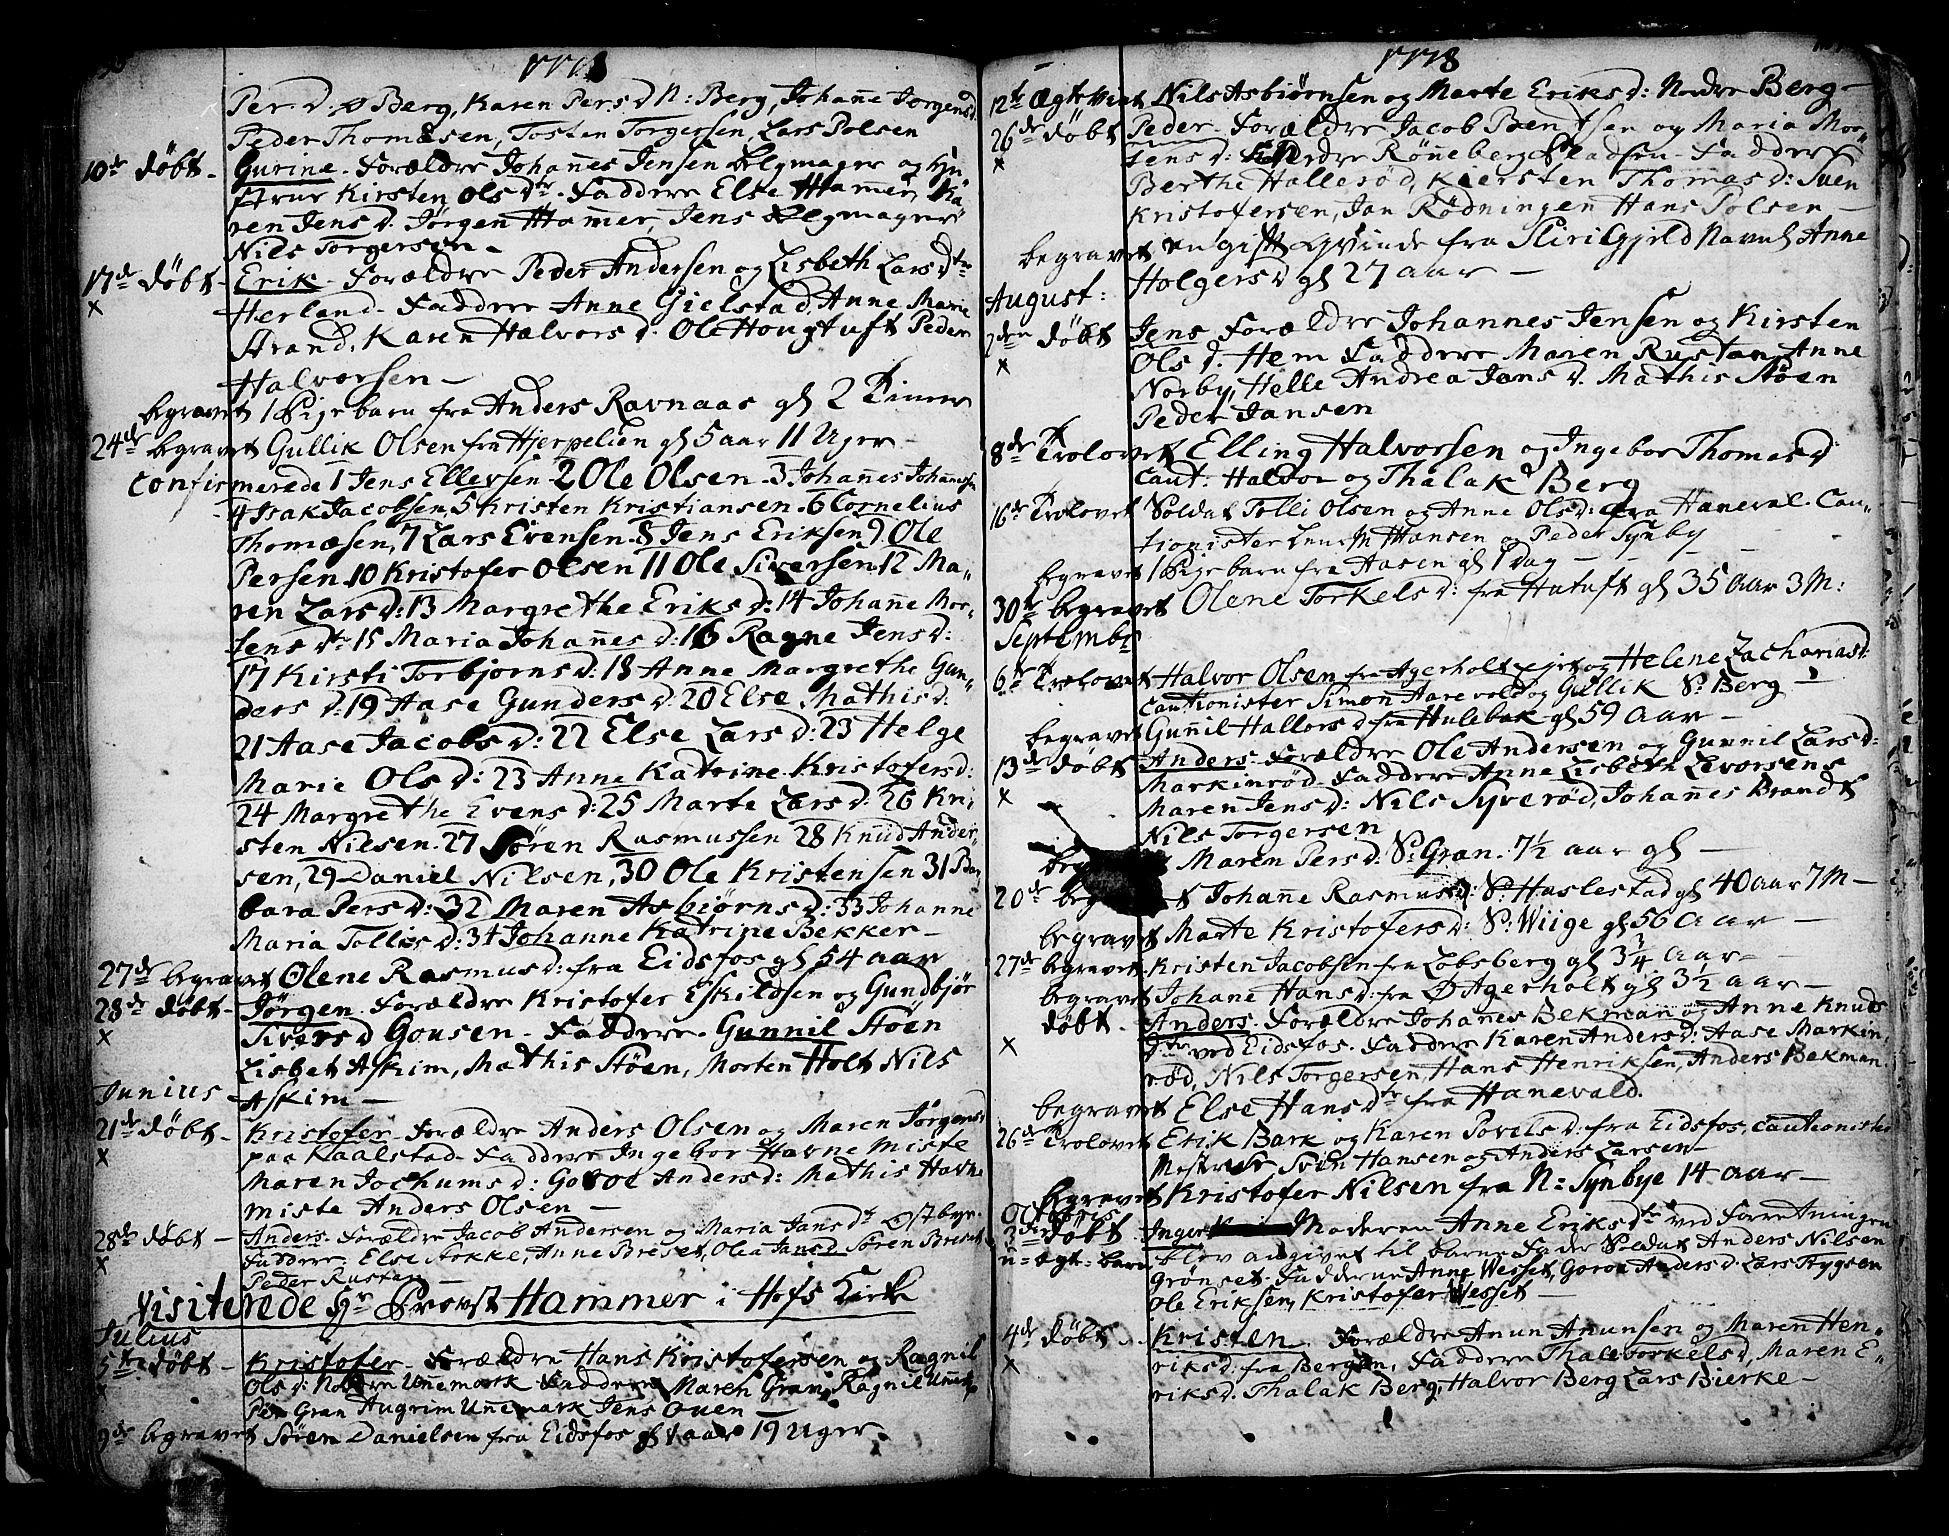 1778
Per. d. ø Berg, Karen Pers d N: Berg, Johañe Jørgensd.
Peder Thomæsen, Tosten Torgersen, Lars Polsen
10de døbt - Gurine - Forældre Johannes Jensen Belgmager og Hu-
strue Kirsten Ols dtr - Faddere Else Hamer, Ka-
ren Jens d. Jørgen Hamer, Jens Belgmager
Nils Torgersen -
17de døbt - Erik - Forældre Peder Andersen og Lisbeth Lars dtr
x Herland - Faddere Anne Gielstad, Anne Marie
Strand, Karen Halvors d. Ole Hougtuft Peder
Halvorsen -
begravet 1 Pigebarn fra Anders Ravnaas gl 2 Timer
24de begravet Gullik Olsen fra Hjerpelien gl 5 aar 11 Uger -
Confirmerede 1 Jens Ellevsen 2 Ole Olsen - 3 Johañes Johannsen
4 Isak Jacobsen, 5 Kristen Kristiansen - 6 Cornelius
Thomæsen, 7 Lars Evensen - 8 Jens Eriksen 9. Ole
Persen 10 Kristofer Olsen 11 Ole Siversen 12 Ma-
ren Lars d: 13 Margrethe Eriks d: 14 Johañe Mor-
tens dtr 15 Maria Johañes d: 16 Ragne Jens d:
17 Kirsti Torbjørns d: 18 Anne Margrethe Gun-
ders d: 19 Aase Gunders d: 20 Else Mathis d:
21 Aase Jacobs d: 22 Else Lars d: 23 Helge
Marie Ols d: 23 Anne Katrine Kristofersd:
24 Margrethe Evens d: 25 Marte Lars d: 26 Kri
sten Nilsen. 27 Søren Rasmussen 28 Knud Ander-
sen, 29 Daniel Nilsen, 30 Ole Kristensen 31 Bar
bara Pers d: 32 Maren Asbiørns d: 33 Johanne
Maria Tollis d: 34 Johanne Katrine Bekker -
27de begravet Olene Rasmus d: fra Eidsfos gl 54 aar
28de døbt - Jørgen - Forældre Kristofer Eskildsen og Gundbjør
x Sivers d Gousen - Faddere - Gunnil Støen
Lisbet Askim, Mathis Støen, Morten Holt Nils
Junius - Askim -
21de døbt - Kristofer - Forældre Anders Olsen og Maren Jørgensd
x paa Kaalstad - Faddere Ingebor Havne Miste
Maren Jochums d: Goroe Anders d: Mathis Havne
miste Anders Olsen -
28de døbt - Anders - Forældre Jacob Andersen og Maria Jans dtr Østbye -
x Faddere - Else Sekke, Anne Breset, Olea Jans d Søren Breset
Peder Rustan -
Visiterede Hr Provst Hammer i Hofs Kirke
Julius
5te døbt - Kristofer - Forældre Hans Kristofersen og Ragnil
x Ols d: Nordre Uñemark Faddere Maren Gran, Ragnil Uñemk
Per Gran Augrim Uñemark Jens Ouen -
9de begravet Søren Danielsen fra Eidsfos gl 1 aar 19 Uger -
1778
12te Ægteviet Nils Asbiørnsen og Marte Eriks d: Nordre Berg -
26de døbt Peder - Forældre Jacob Bentsen og Maria Mor-
x tens d: Røñeberg Pladsen - Faddere
Berthe Hallerød, Kiersten Thomas d: Suen
Kristofersen, Jan Rødningen Hans Polsen -
begravet en gift Qvinde fra Gjeld Navnl Anne
Holgers d gl 27 aar -
August:
2den døbt Jens Forældre Johannes Jensen og Kirsten
x Ols d. Hem Faddere Maren Rustan Anne
Norby, Helle Andrea Jans d. Mathis Støen
Peder Jansen
8de Trolovet Elling Halvorsen og Ingebor Thomas d:
Caut: Haldor og Thalak Berg
16de Trolovet Soldat Tolli Olsen og Anne Ols d: fra Haneval - Cau-
tionister Hansen og Peder Synby
begravet 1 Pigebarn fra Aasen gl 1 Dag -
30te begravet Olene Torkels d: fra Hutuft gl 35 aar 3 M:
Septembr
6te Trolovet Halvor Olsen fra Agerholt ejet og Helene Zachariasd:
Cautionister Simon Aarevold og Gullik S: Berg -
begravet Gunnil Hallors d fra Hulebak gl 59 aar -
13de døbt Anders - Forældre Ole Andersen og Gunnil Lars d:
x Markinrød - Faddere Anne Lisbeth Levorsens
Maren Jens d: Nils Syverød, Johañes Brandt
Nils Torgersen
Maren Pers d: S: Gran. 7½ aar gl -
20de beg t Johañe Rasmus d: S: Haslestad gl 40 aar 7 M -
begravet Marte Kristofers d: S: Wiige gl 56 aar -
27de begravet Kristen Jacobsen fra Løbsberg gl 3¾ aar -
begravet Johane Hans d: fra Ø Agerholt gl 3½ aar -
døbt - Anders - Forældre Johañes Bekman og Anne Knuds
x dtr ved Eidsfos. Faddere Karen Anders d: Aase Markin
rød, Nils Torgersen, Hans Henriksen, Anders Bekman -
begravet Else Hans dtr fra Hanevald.
26de Trolovet Erik Bark og Karen Povels d: fra Eidsfos, Cautionister
Mester Svin Hansen og Anders Larsen -
begravet Kristofer Nilsen fra N: Synbye 14 aar -
Octobris
3die døbt. Inger Moderen Anne Eriks dtr ved Forretningen
u-ægt-barn blev angivet til Barne Fader Soldat Anders Nilsen
Grønset - Fadderne Anne Wesset, Goroe Anders d. Lars Stygsen
Ole Eriksen, Kristofer Wesset -
4de døbt. Kristen - Forældre Anun Anunsen og Maren Hen-
x riks d: fra Bergan, Faddere Thale Torkels d, Maren E-
riks d. Thalak Berg, Halvor Berg Lars Bierke -